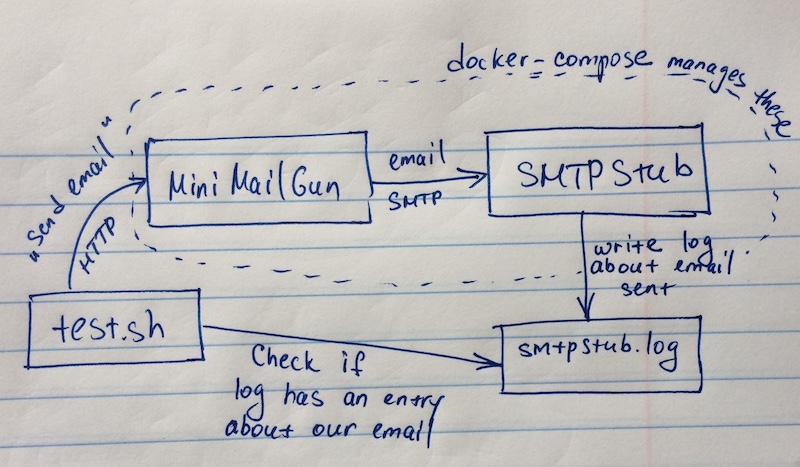 docker-compose manages these
"send email"
HTTP
MiniMailGun
email
SMTP
SMTPStub
write log
about email
sent
test.sh
Check if
log has an entry
about our email
smtpstub.log